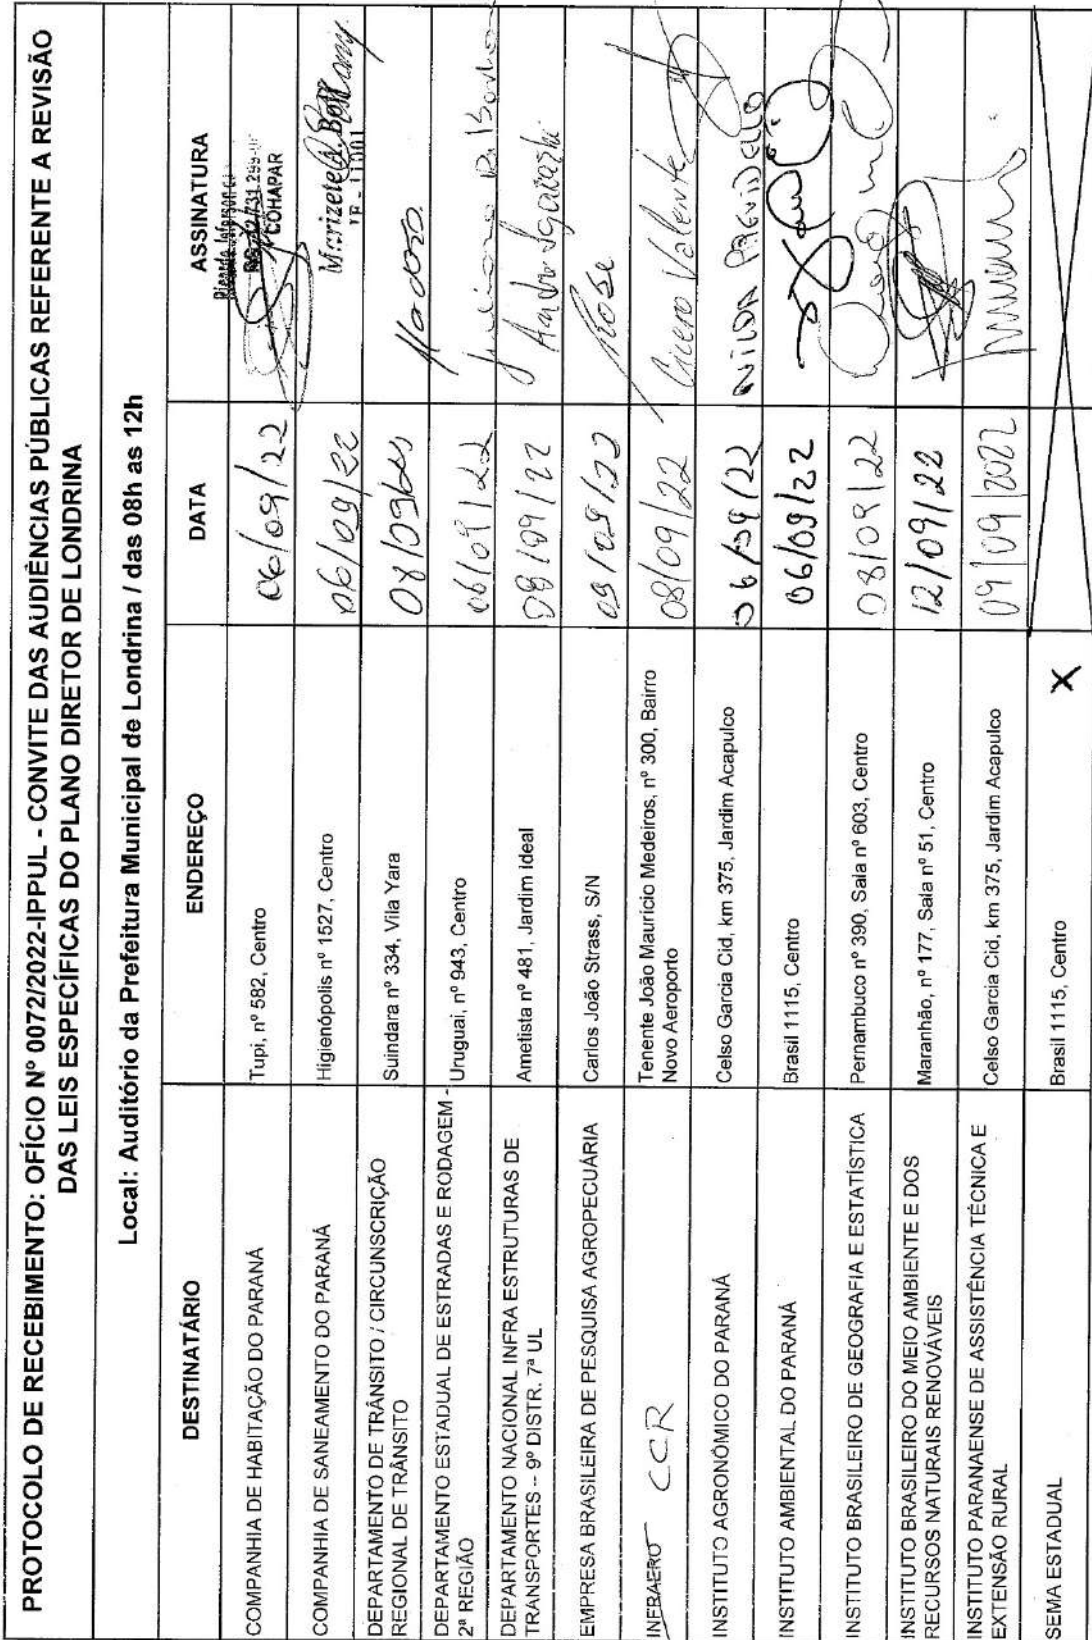 PROTOCOLO DE RECEBIMENTO: OFÍCIO Nº 0072/2022-IPPUL - CONVITE DAS AUDIÊNCIAS PÚBLICAS REFERENTE A REVISÃO
DAS LEIS ESPECÍFICAS DO PLANO DIRETOR DE LONDRINA
Local: Auditório da Prefeitura Municipal de Londrina / das 08h as 12h
DESTINATÁRIO ENDEREÇO DATA ASSINATURA
COMPANHIA DE HABITAÇÃO DO PARANÁ Tupi, nº 582, Centro 06/09/22 COHAPAR
COMPANHIA DE SANEAMENTO DO PARANÁ Higienópolis nº 1527, Centro 06/09/22 Marizete
DEPARTAMENTO DE TRÂNSITO / CIRCUNSCRIÇÃO
REGIONAL DE TRÂNSITO Suindara nº 334, Vila Yara
DEPARTAMENTO ESTADUAL DE ESTRADAS E RODAGEM -
2ª REGIÃO Uruguai, nº 943, Centro 06/09/22
DEPARTAMENTO NACIONAL INFRA ESTRUTURAS DE
TRANSPORTES – 9º DISTR. 7ª UL Ametista nº 481, Jardim ideal 08/09/22
EMPRESA BRASILEIRA DE PESQUISA AGROPECUÁRIA Carlos João Strass, S/N 09/09/22 Rose
INFRAERO CCR Tenente João Maurício Medeiros, nº 300, Bairro
Novo Aeroporto 08/09/22 Cicero Valente
INSTITUTO AGRONÔMICO DO PARANÁ Celso Garcia Cid, km 375, Jardim Acapulco 06/09/22 NILDA PREVIDELLO
INSTITUTO AMBIENTAL DO PARANÁ Brasil 1115, Centro 06/09/22
INSTITUTO BRASILEIRO DE GEOGRAFIA E ESTATÍSTICA Pernambuco nº 390, Sala nº 603, Centro 08/09/22
INSTITUTO BRASILEIRO DO MEIO AMBIENTE E DOS
RECURSOS NATURAIS RENOVÁVEIS Maranhão, nº 177, Sala nº 51, Centro 12/09/22
INSTITUTO PARANAENSE DE ASSISTÊNCIA TÉCNICA E
EXTENSÃO RURAL Celso Garcia Cid, km 375, Jardim Acapulco 09/09/2022
SEMA ESTADUAL Brasil 1115, Centro X